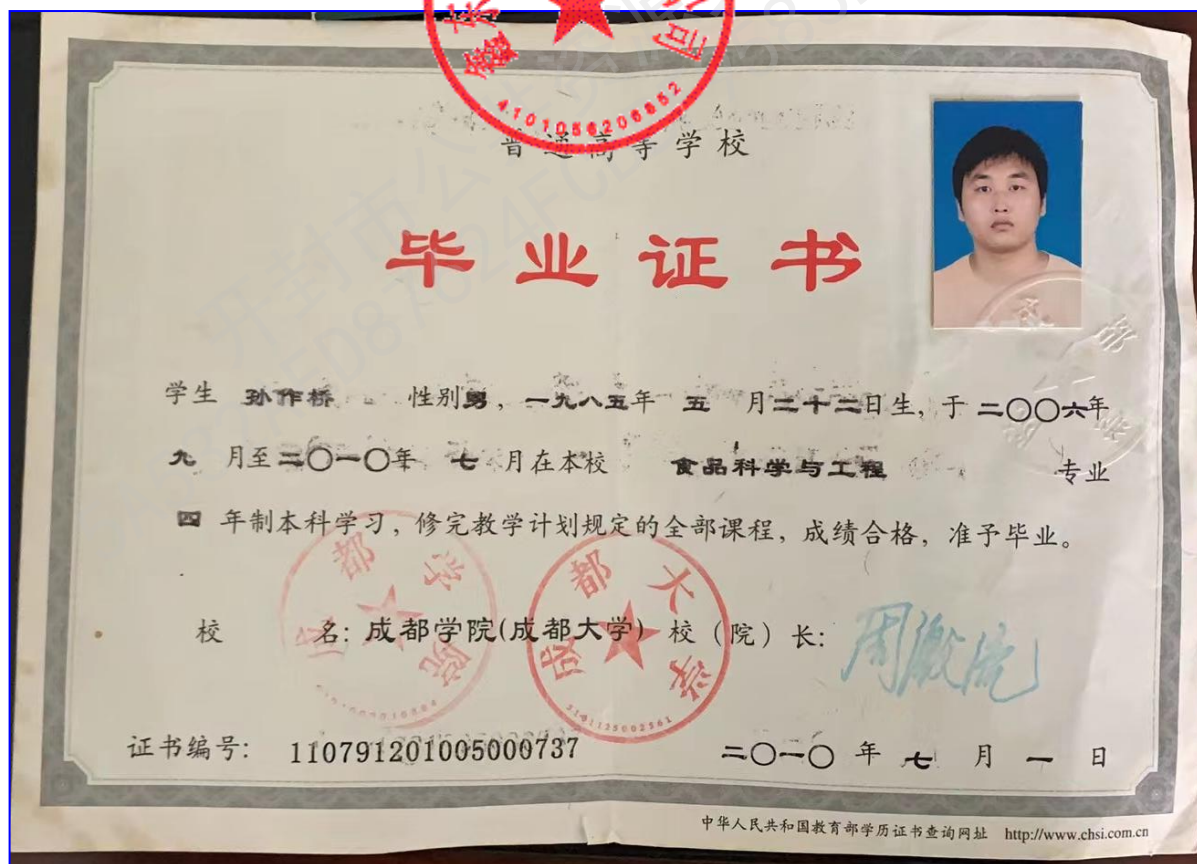 4101056206852
普通高等学校
毕业证书
学生 孙作桥 性别男，一九八五年 五 月二十二日生，于 二〇〇六年
九 月至二〇一〇年 七 月在本校 食品科学与工程 专业
四 年制本科学习，修完教学计划规定的全部课程，成绩合格，准予毕业。
成都学院
成都大学
校 名：成都学院(成都大学) 校（院）长：周激流
5101125002561
证书编号： 110791201005000737 二〇一〇 年 七 月 一 日
中华人民共和国教育部学历证书查询网址 http://www.chsi.com.cn